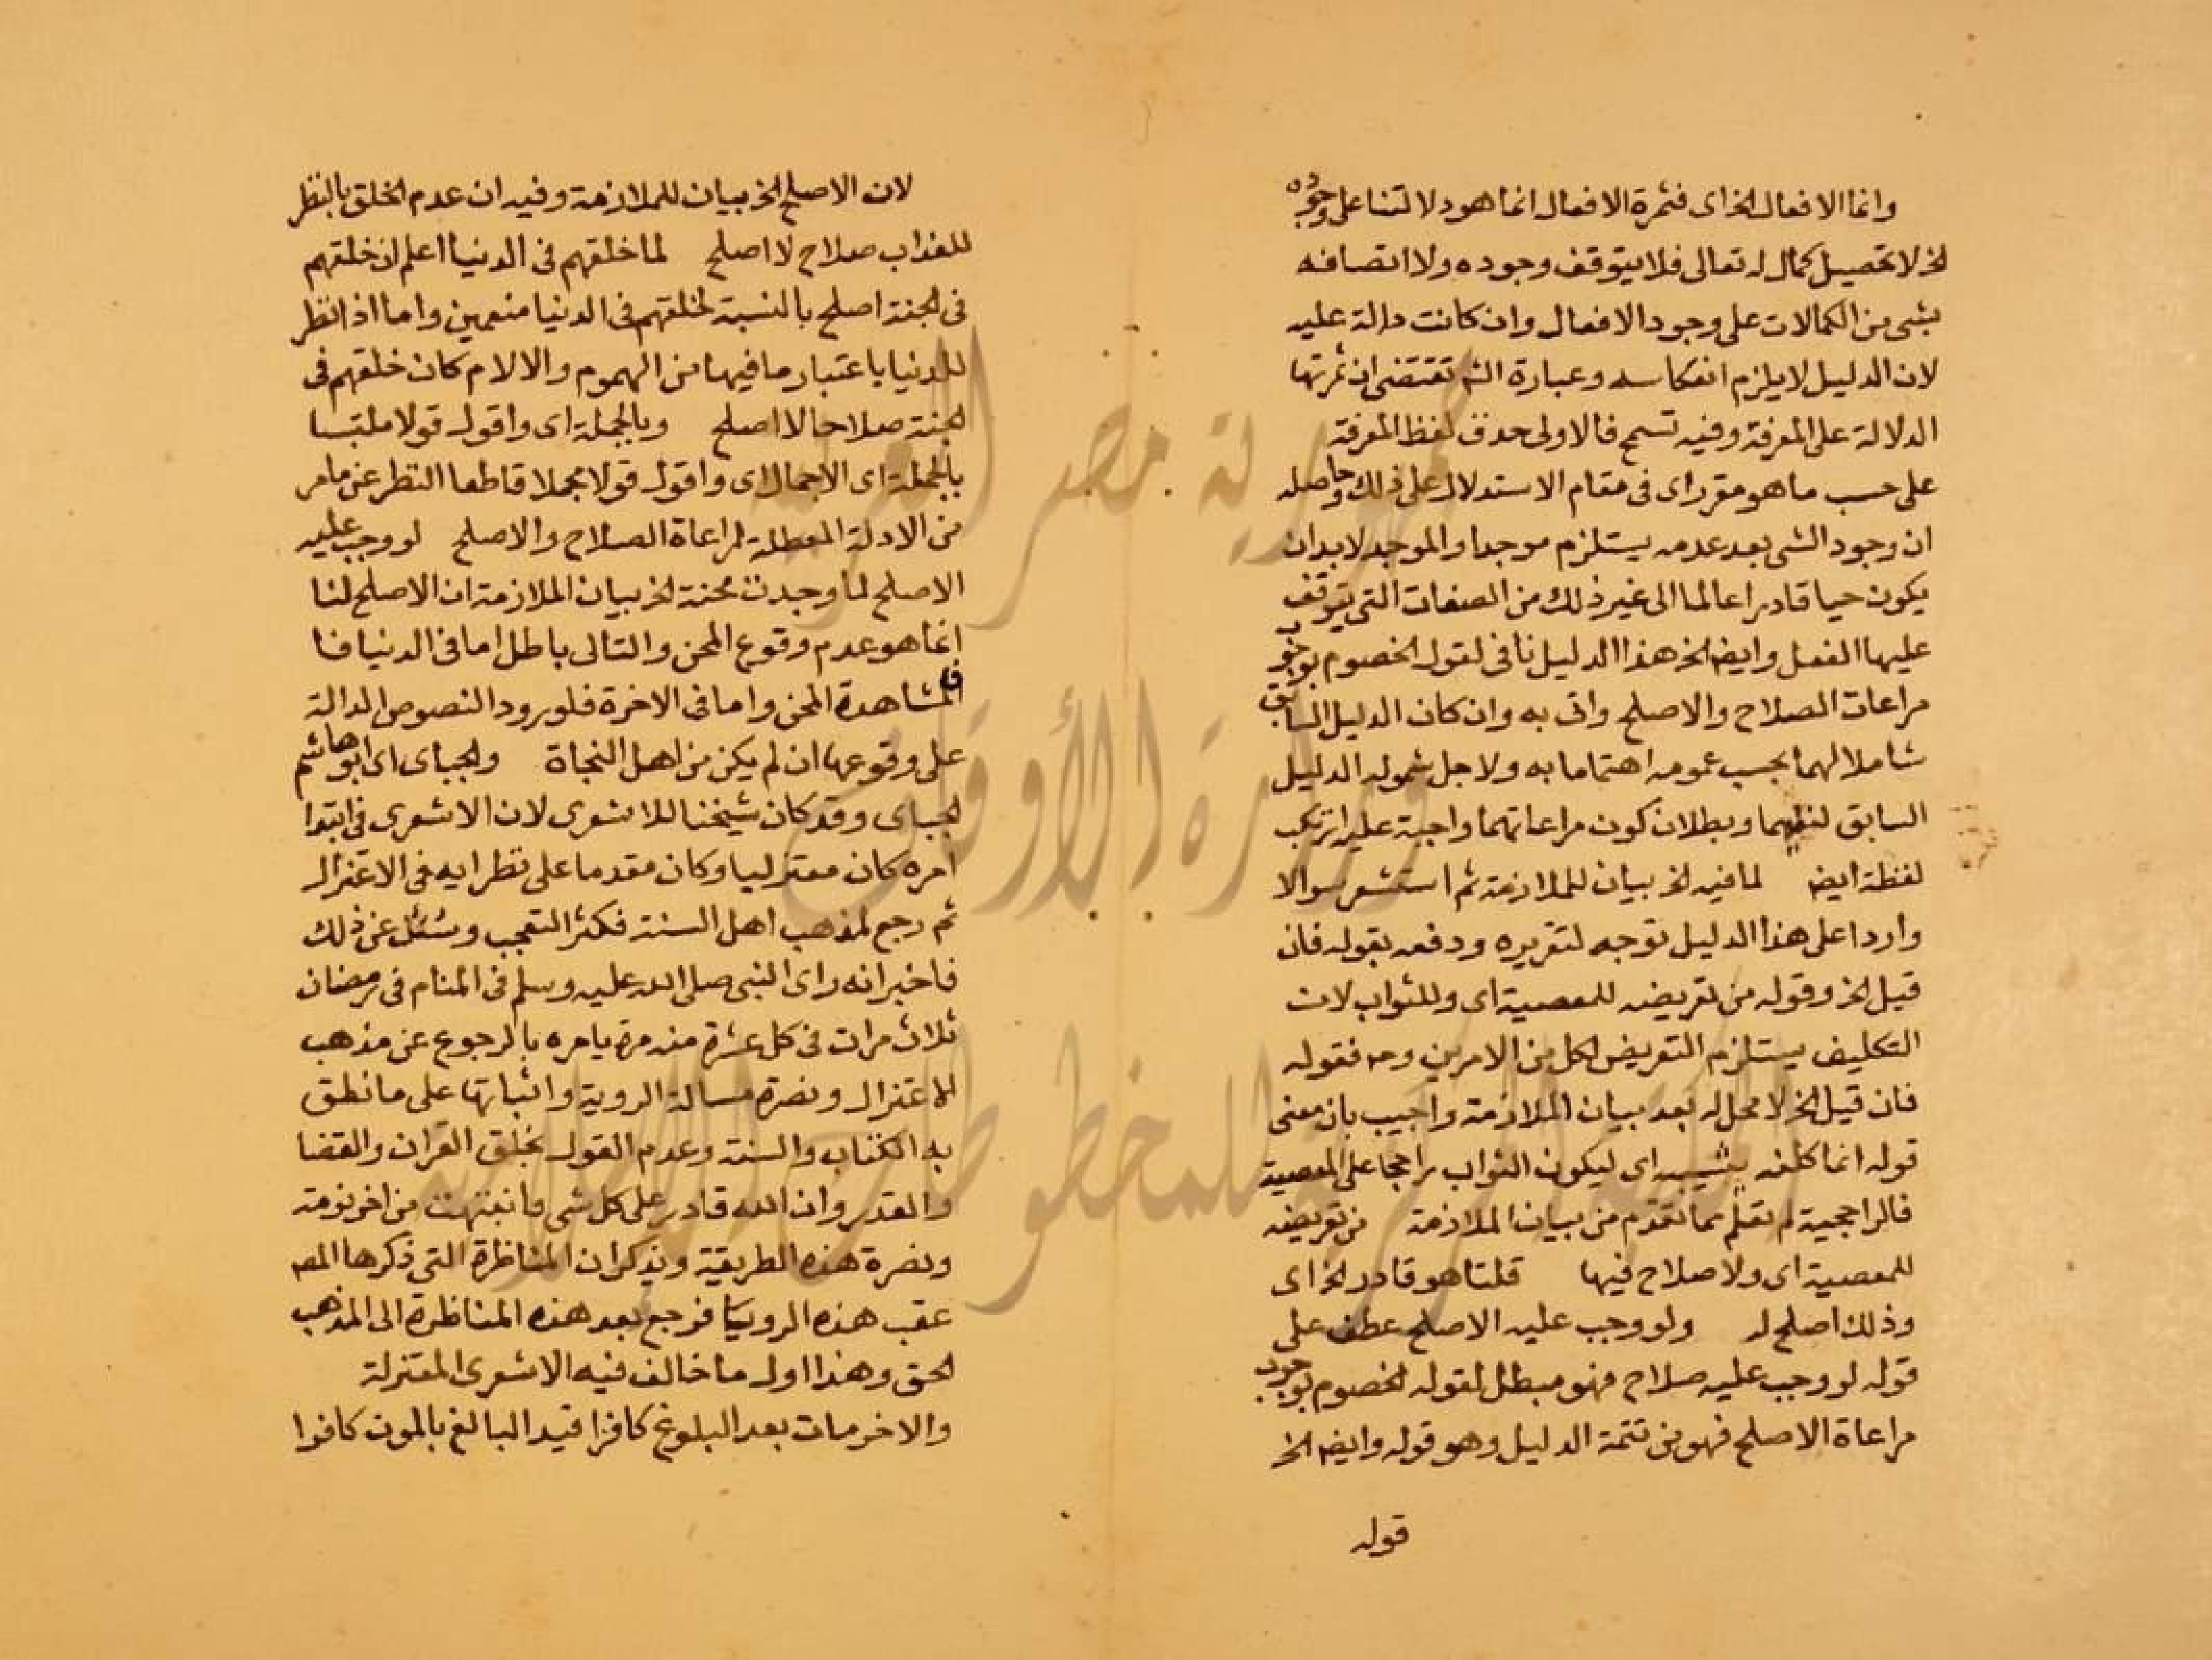 وانما الافعال الخ اى فثمرة الافعال انما هو دلالتنا على وجوده
الخ لا تحصيل كمال له تعالى فلا يتوقف وجوده ولا اتصافه
بشى من الكمالات على وجود الافعال وان كانت دالة عليه
لان الدليل لا يلزم انعكاسه وعبارة الش تقتضى ان ثمرتها
الدلالة على المعرفة وفيه تسمح فالاولى حذف لفظ المعرفة
على حسب ما هو مقرر اى فى مقام الاستدلال على ذلك وحاصله
ان وجود الشى بعد عدمه يستلزم موجدا والموجد لا بد ان
يكون حيا قادرا عالما الى غير ذلك من الصفات التى يتوقف
عليها الفعل وايضا الخ هذا الدليل نافى لقول الخصوم بوجوب
مراعات الصلاح والاصلح واتى به وان كان الدليل السابق
شاملا لهما بحسب عمومه اهتماما به ولاجل شمول الدليل
السابق لنفيهما وبطلان كون مراعاتهما واجبة عليه ارتكب
لفظة ايضا لما فيه الخ بيان للملازمة ثم استشعر سوالا
واردا على هذا الدليل توجه لتقريره ودفعه بقوله فان
قيل الخ وقوله من تعريضه للمعصية اى وللثواب لان
التكليف يستلزم التعريض لكل من الامرين وح فقوله
فان قيل الخ لا محل له بعد بيان الملازمة واجيب بان معنى
قوله انما كلفه ليثيبه اى ليكون الثواب راجحا على المعصية
فالراجحية لم تعلم مما تقدم من بيان الملازمة من تعريضه
للمعصية اى ولا صلاح فيها قلنا هو قادر الخ اى
وذلك اصلح له ولو وجب عليه الاصلح عطف على
قوله لو وجب عليه صلاح فهو مبطل لقول الخصوم بوجوب
مراعاة الاصلح فهو من تتمة الدليل وهو قوله وايضا الخ
قوله
لان الاصلح الخ بيان للملازمة وفيه ان عدم الخلق بالنظر
للعذاب صلاح لا اصلح لما خلقهم فى الدنيا اعلم ان خلقهم
فى الجنة اصلح بالنسبة لخلقهم فى الدنيا منعمين واما اذا نظر
للدنيا باعتبار ما فيها من الهموم والالام كان خلقهم فى
الجنة صلاحا لا اصلح وبالجملة اى واقول قولا ملتبسا
بالجملة اى الاجمال اى واقول قولا مجملا قاطعا النظر عن ما مر
من الادلة المعطلة لمراعاة الصلاح والاصلح لو وجب عليه
الاصلح لما وجدت محنة الخ بيان الملازمة ان الاصلح لنا
انما هو عدم وقوع المحن والتالى باطل اما فى الدنيا فا
فلمشاهدة المحن واما فى الاخرة فلورود النصوص الدالة
على وقوعها ان لم يكن من اهل النجاة والجباى اى ابو هاشم
الجباى وقد كان شيخنا للاشعرى لان الاشعرى فى ابتدا
امره كان معتزليا وكان مقدما على نظرايه فى الاعتزال
ثم رجع لمذهب اهل السنة فكثر التعجب وسئل عن ذلك
فاخبر انه راى النبى صلى الله عليه وسلم فى المنام فى رمضان
ثلاث مرات فى كل عشرة منه مرة يامره بالرجوع عن مذهب
الاعتزال ونصرة مسالة الروية واثباتها على ما نطق
به الكتاب والسنة وعدم القول بخلق القران والقضا
والقدر وان الله قادر على كل شى فانتهت من اخر نومة
ونصرة هذه الطريقة ويذكر ان المناظرة التى ذكرها المص
عقب هذه الرويا فرجع بعد هذه المناظرة الى المذهب
الحق وهذا اول ما خالف فيه الاشعرى المعتزلة
والاخر مات بعد البلوغ كافرا قيد البالغ بالموت كافرا
جمهورية مصر العربية
وزارة الأوقاف
المكتبة المركزية للمخطوطات الإسلامية